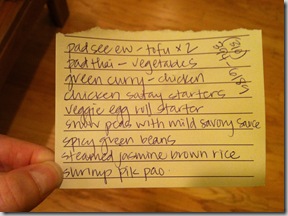 pad see ew - tofu x 2
pad thai - vegetables
green curry - chicken
chicken satay starters
veggie egg roll starter
snow peas with mild savory sauce
spicy green beans
steamed jasmine brown rice
shrimp pik pao